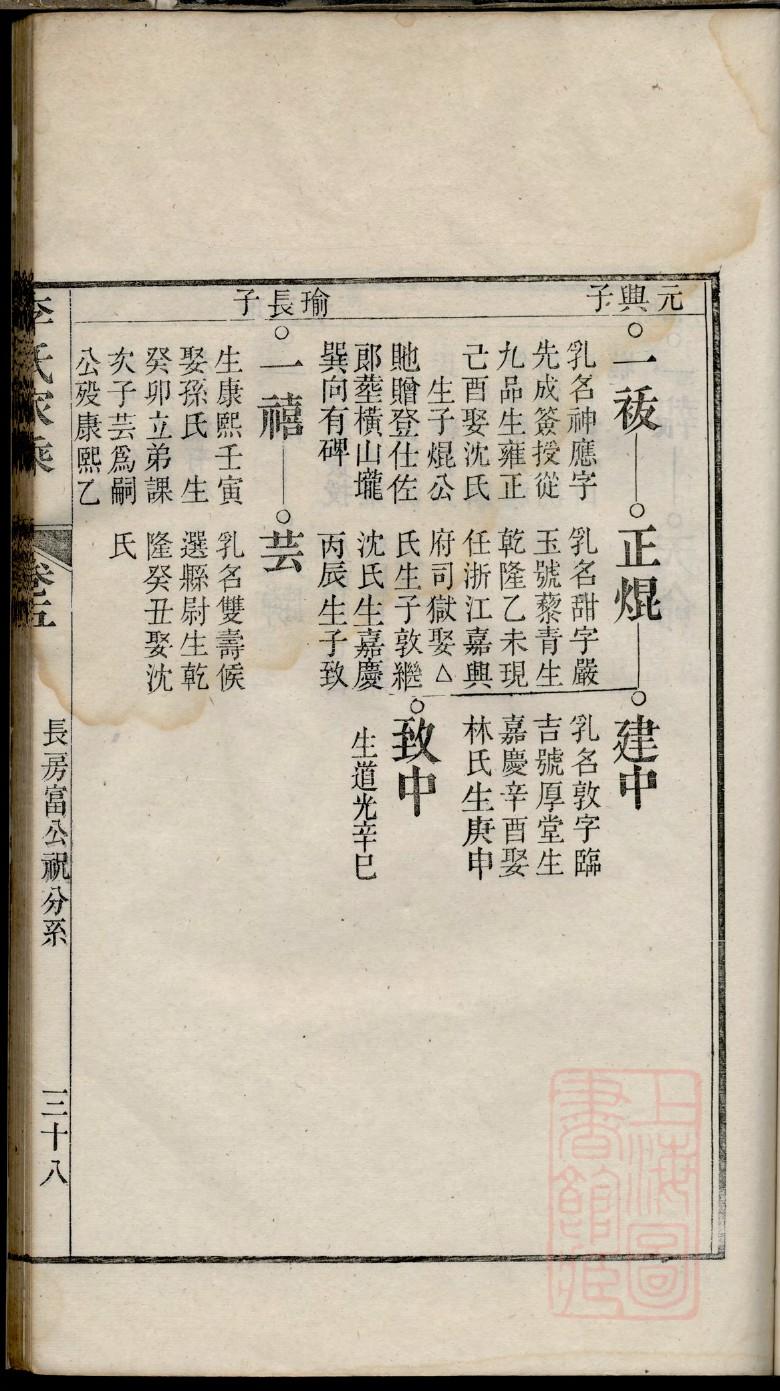 元興子
一祓
乳名神應字
先成簽授從
九品生雍正
己酉娶沈氏
生子焜公
貤贈登仕佐
郎塟橫山壠
巽向有碑
正焜
乳名甜字嚴
玉號藜青生
乾隆乙未現
任浙江嘉興
府司獄娶△
氏生子敦繼
沈氏生嘉慶
丙辰生子致
建中
乳名敦字臨
吉號厚堂生
嘉慶辛酉娶
林氏生庚申
致中
生道光辛巳
瑜長子
一禧
生康熙壬寅
娶孫氏 生
癸卯立弟課
次子芸爲嗣
公歿康熙乙
芸
乳名雙壽候
選縣尉生乾
隆癸丑娶沈
氏
李氏家乘
卷五
長房富公祝分系
三十八
上海圖
書館藏